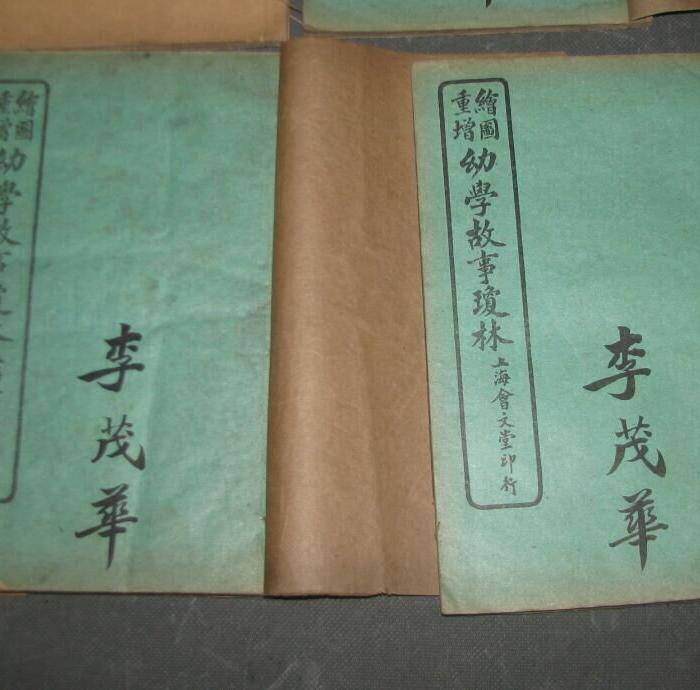 繪圖
重增
幼學故事瓊林
上海會文堂印行
李茂華
繪圖
重增
幼學故
李茂華